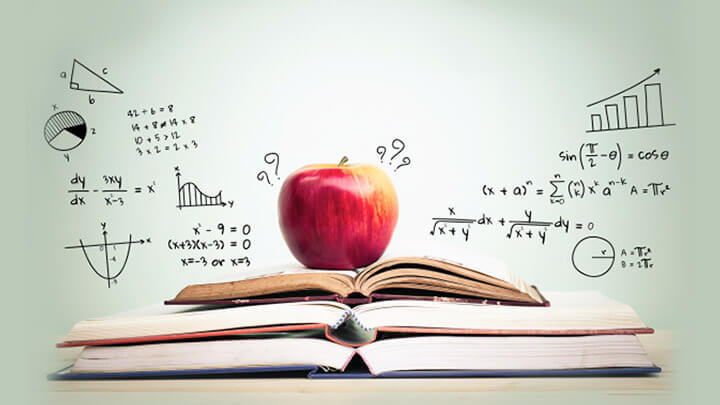 a c
b
x
2
y
42 ÷ 6 = 8
14 + 8 ≠ 14 × 8
10 + 5 > 12
3 × 2 = 2 × 3
dy/dx - 3xy/x²-3 = x²
x
y
x² - 9 = 0
(x+3)(x-3) = 0
x=-3 or x=3
y
x
0 1
-3
? ?
? ? ?
sin(π/2 - θ) = cosθ
(x + a)ⁿ = ∑ⁿₖ₌₀ (n k) xᵏ aⁿ⁻ᵏ A = πr²
x/√(x² + y²) dx + y/√(x² + y²) dy = 0
r
A = πr²
B = 2πr